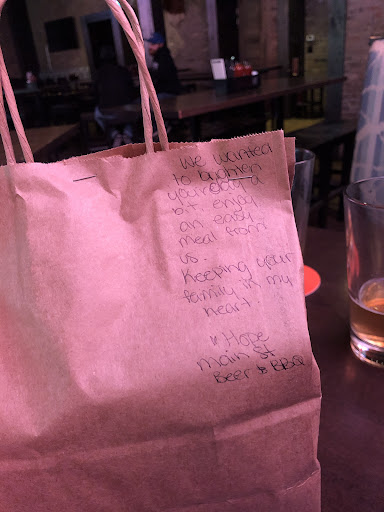 We wanted
to brighten
your day a
bit enjoy
an easy
meal from
us.
Keeping your
family in my
heart
Hope
main St
Beer & BBQ